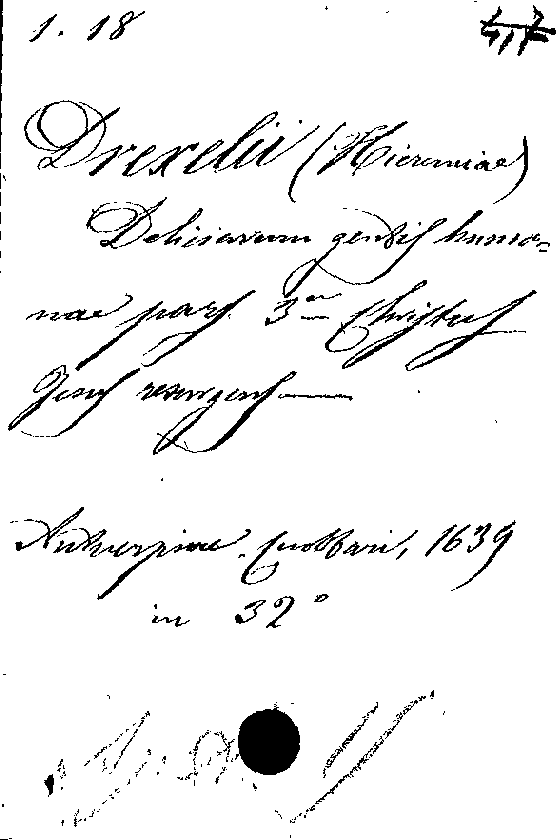 1. 18
Drexelii (Hieremiae)
Deliciarum gentis huma-
nae pars. 3a Christus
Jesus resurgens —
Antverpiae. Cnobbari, 1639
in 32°